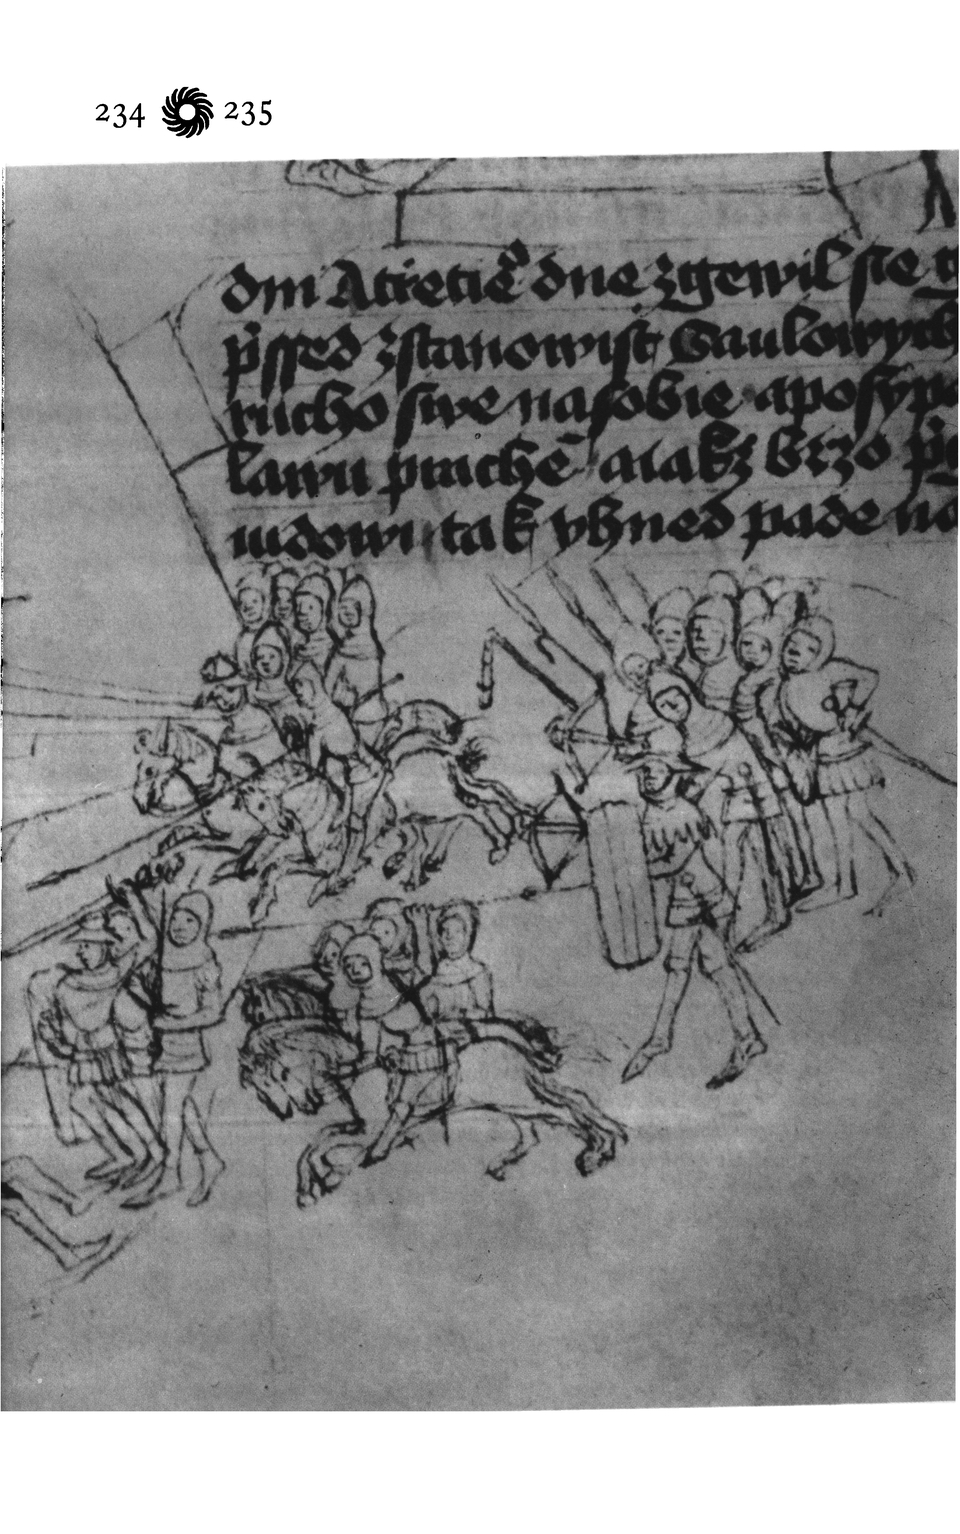 234 235
dnı A třetieͤ dne zgewil se g
pͥssed zstanowisſt Saulowych
rucho swe na sobie a posypa
lawu prachē a iakz brzo pͥ
ıudowi tak yhned pade na